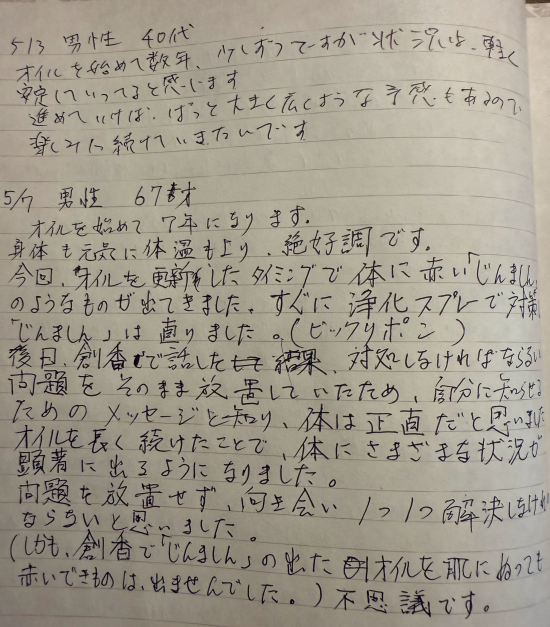 5/3 男性 40代
オイルを始めて数年、少しずつですが状況は、軽く
安定していってると感じます
進めていけば、ぱっと大きく広くような予感もあるので
楽しみに続けていきたいです
5/7 男性 67才
オイルを始めて7年になります。
身体も元気に体温も上り、絶好調です。
今回、オイルを更新しましたタイミングで体に赤い「じんましん」
のようなものが出てきました。すぐに浄化スプレーで対策
「じんましん」は直りました。(ビックリポン)
後日、創香で話した結果、対処しなければならない
問題をそのまま放置していたため、自分に知らせる
ためのメッセージと知り、体は正直だと思いました
オイルを長く続けたことで、体にさまざまな状況が
顕著に出るようになりました。
問題を放置せず、向き会い 1つ1つ解決しなければ
ならないと思いました。
(しかも、創香で「じんましん」の出たオイルを肌にぬっても
赤いできものは、出ませんでした。)不思議です。